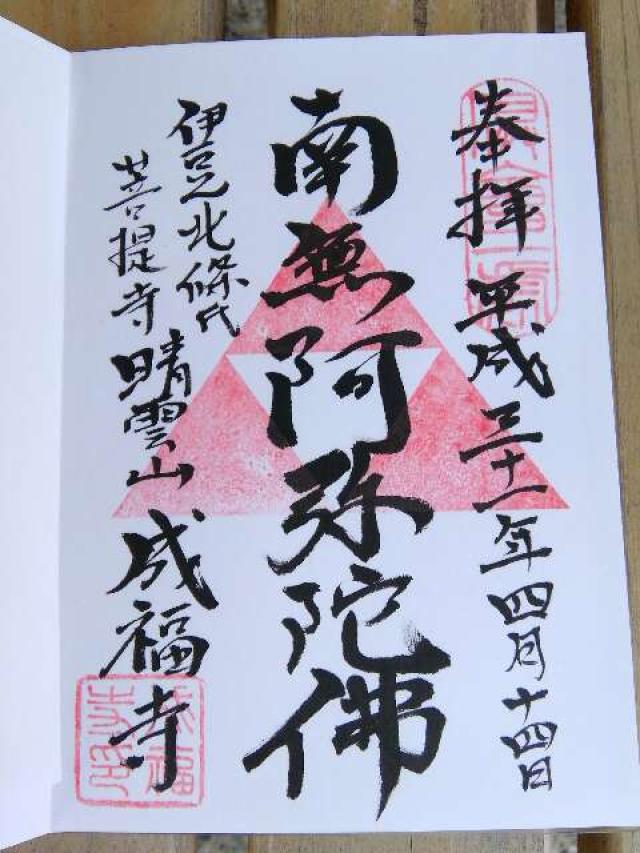 奉拝 平成三十一年四月十四日
南無阿弥陀佛
伊豆北條氏
菩提寺 晴雲山 成福寺